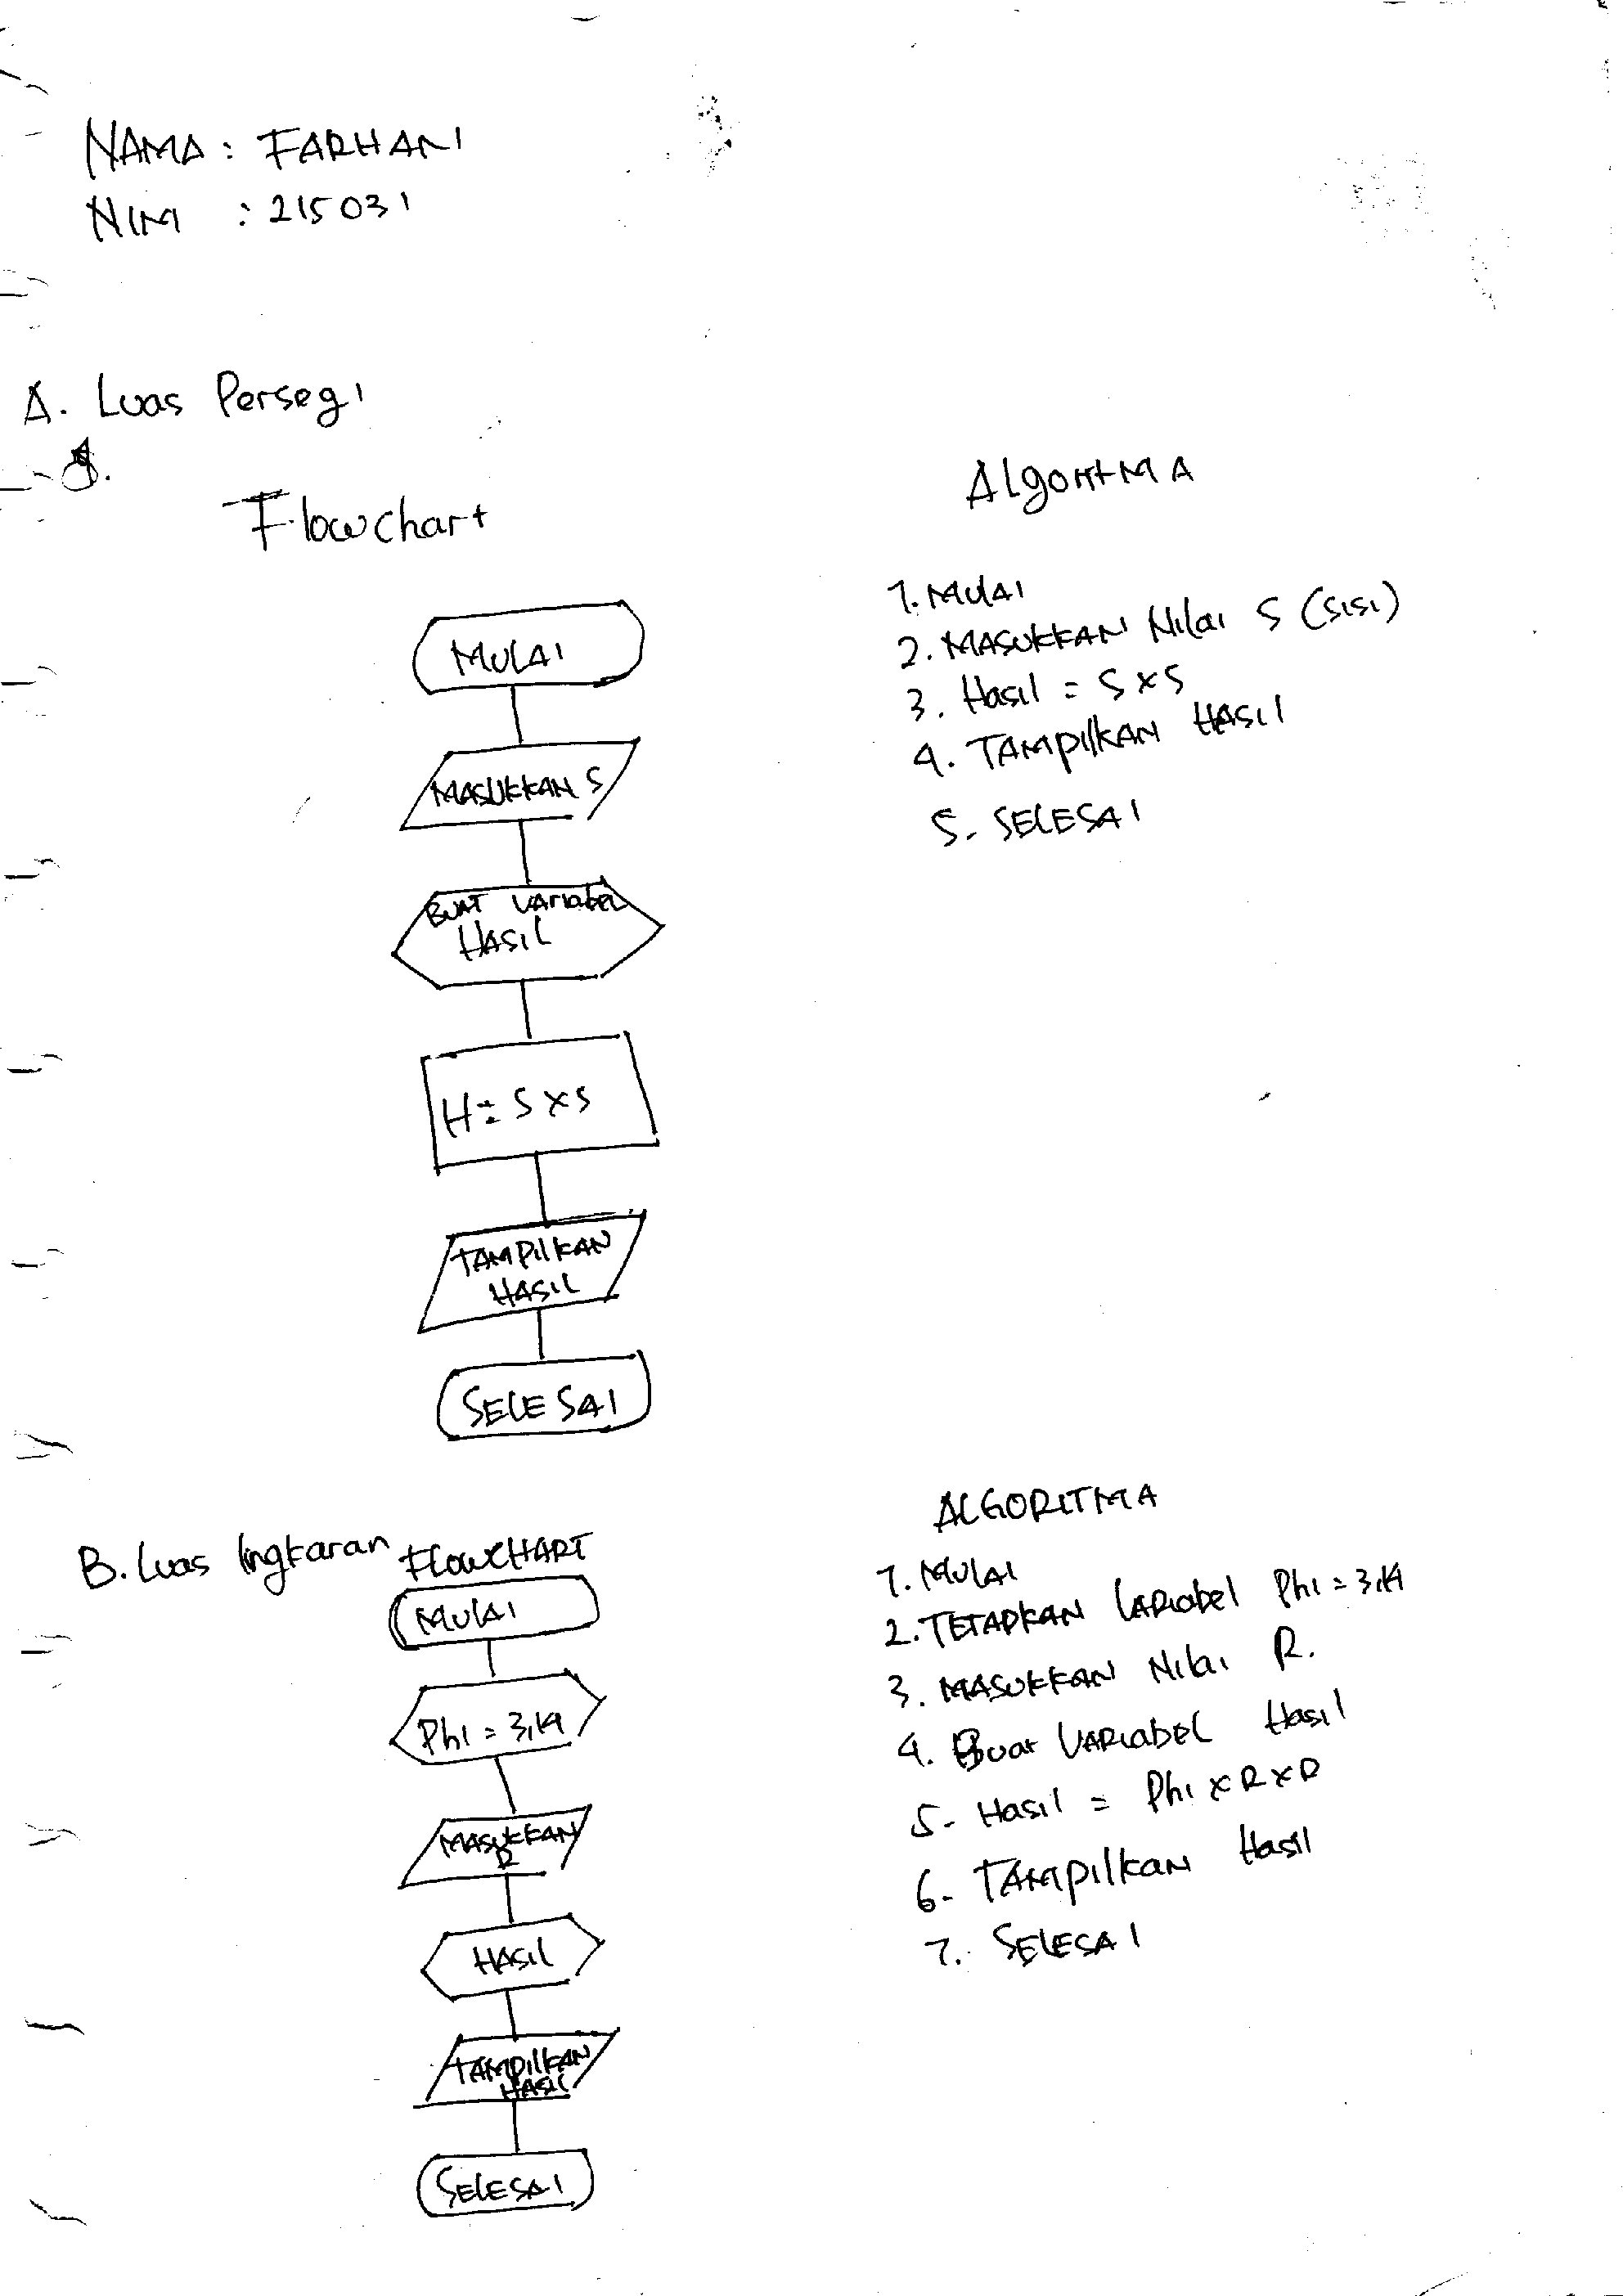 NAMA : FARHAN
NIM : 215031
A. Luas Persegi
Flowchart
MULAI
MASUKKAN S
BUAT VARIabel
HASIL
H = S x S
TAMPILKAN
HASIL
SELESAI
AlgoritMA
1. MULAI
2. MASUKKAN Nilai S (SISI)
3. Hasil = S x S
4. TAMPilKAN HASil
5. SELESAI
B. Luas lingkaran
FLOWCHART
MULAI
Phi = 3,14
MASUKKAN
R
HASIL
TAMPILKAN
HASIL
SELESAI
ALGORITMA
1. MULAI
2. TETAPKAN VARiabel Phi = 3,14
3. MASUKKAN Nilai R.
4. Buat VARiabEL Hasil
5. Hasil = Phi x R x R
6. TAMpilkan Hasil
7. SELESAI